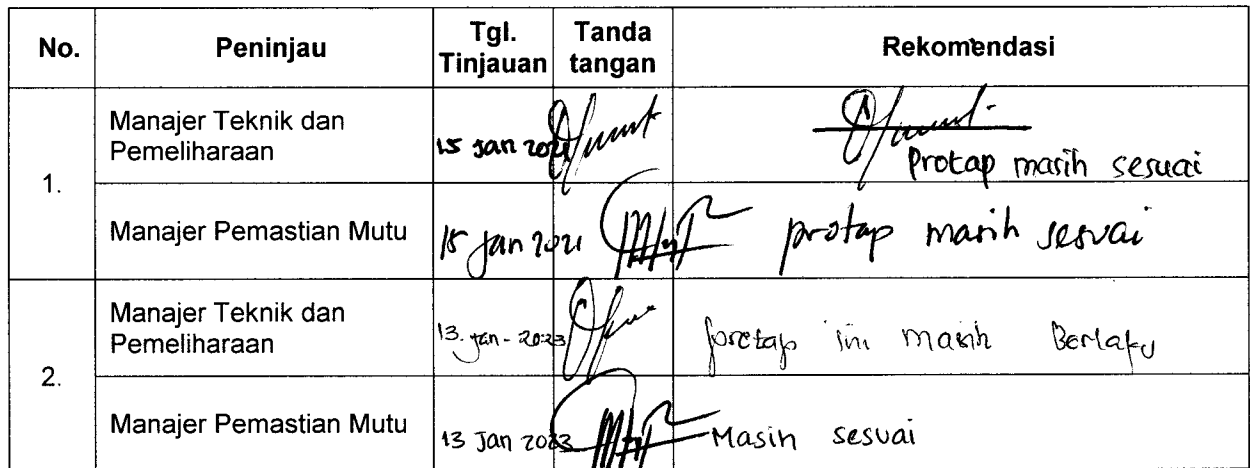 No. Peninjau Tgl. Tinjauan Tanda tangan Rekomendasi
1. Manajer Teknik dan Pemeliharaan 15 Jan 2021 Protap masih sesuai
Manajer Pemastian Mutu 15 Jan 2021 protap masih sesuai
2. Manajer Teknik dan Pemeliharaan 13. Jan - 2023 protap ini masih Berlaku
Manajer Pemastian Mutu 13 Jan 2023 Masih sesuai